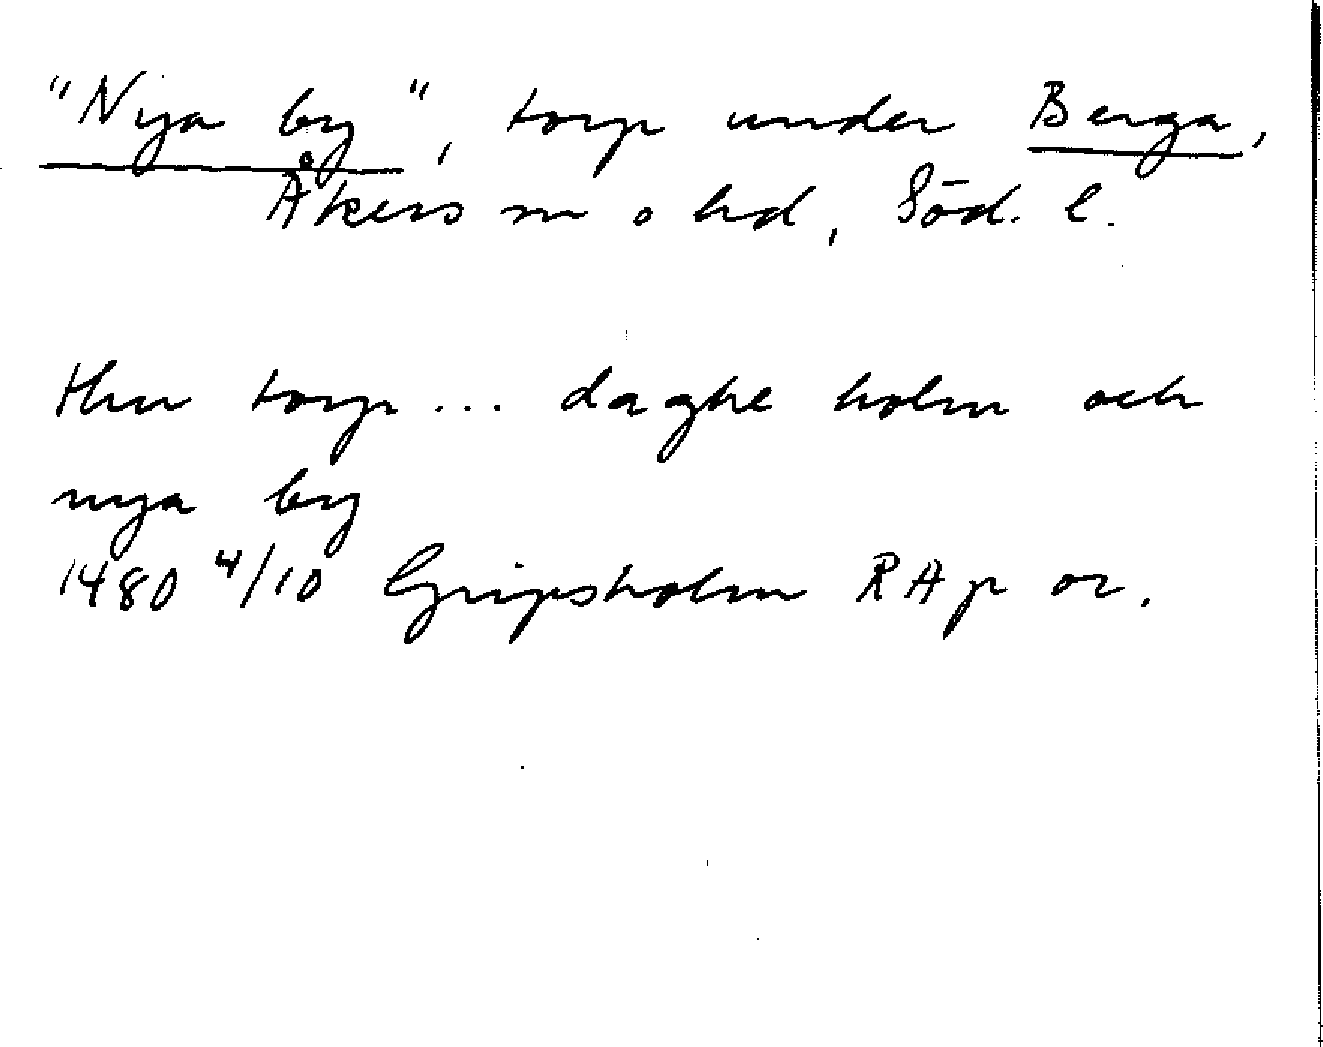 "Nya by", torp under Berga,
Åkers sn o hd, Söd. l.
thw torp ... daghe holm och
nya by
1480 4/10 Gripsholm RAp or.